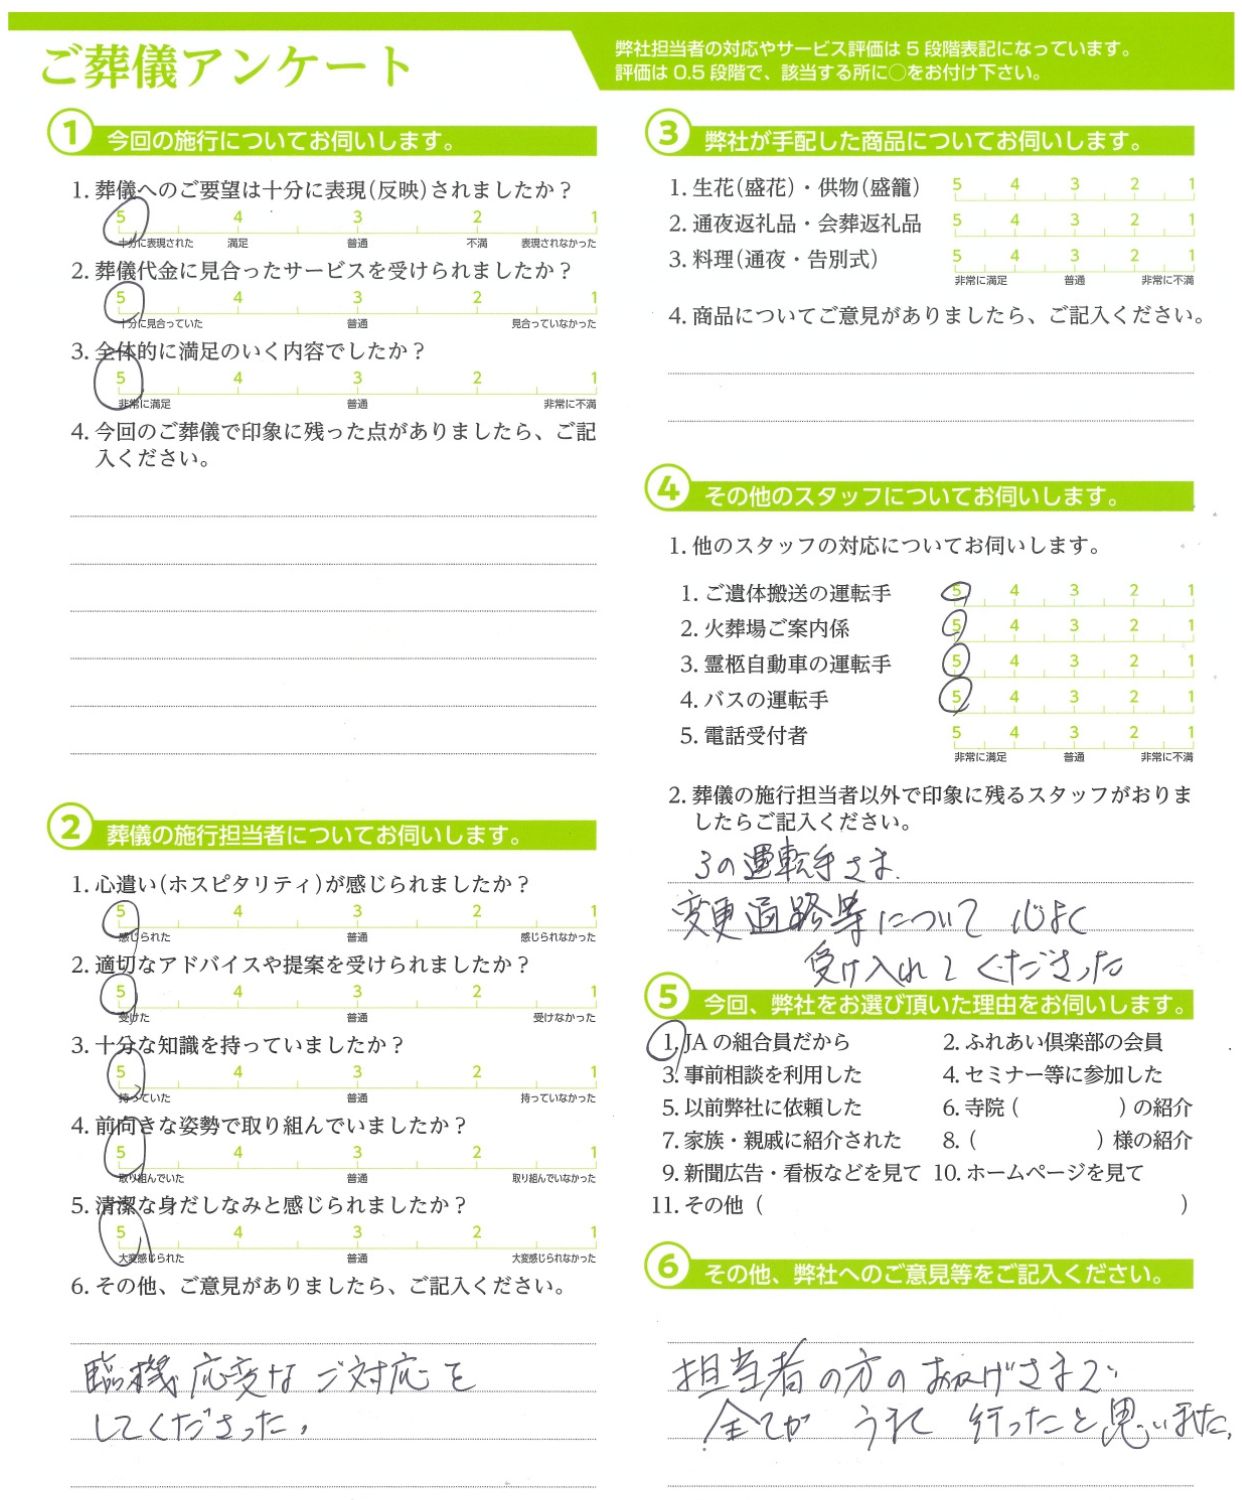 ご葬儀アンケート
弊社担当者の対応やサービス評価は5段階表記になっています。
評価は0.5段階で、該当する所に○をお付け下さい。
1 今回の施行についてお伺いします。
1. 葬儀へのご要望は十分に表現(反映)されましたか？
5 4 3 2 1
十分に表現された 満足 普通 不満 表現されなかった
2. 葬儀代金に見合ったサービスを受けられましたか？
5 4 3 2 1
十分に見合っていた 普通 見合っていなかった
3. 全体的に満足のいく内容でしたか？
5 4 3 2 1
非常に満足 普通 非常に不満
4. 今回のご葬儀で印象に残った点がありましたら、ご記
入ください。
2 葬儀の施行担当者についてお伺いします。
1. 心遣い(ホスピタリティ)が感じられましたか？
5 4 3 2 1
感じられた 普通 感じられなかった
2. 適切なアドバイスや提案を受けられましたか？
5 4 3 2 1
受けた 普通 受けなかった
3. 十分な知識を持っていましたか？
5 4 3 2 1
持っていた 普通 持っていなかった
4. 前向きな姿勢で取り組んでいましたか？
5 4 3 2 1
取り組んでいた 普通 取り組んでいなかった
5. 清潔な身だしなみと感じられましたか？
5 4 3 2 1
大変感じられた 普通 大変感じられなかった
6. その他、ご意見がありましたら、ご記入ください。
臨機応変なご対応を
してくださった。
3 弊社が手配した商品についてお伺いします。
1. 生花(盛花)・供物(盛籠) 5 4 3 2 1
2. 通夜返礼品・会葬返礼品 5 4 3 2 1
3. 料理(通夜・告別式) 5 4 3 2 1
非常に満足 普通 非常に不満
4. 商品についてご意見がありましたら、ご記入ください。
4 その他のスタッフについてお伺いします。
1. 他のスタッフの対応についてお伺いします。
1. ご遺体搬送の運転手 5 4 3 2 1
2. 火葬場ご案内係 5 4 3 2 1
3. 霊柩自動車の運転手 5 4 3 2 1
4. バスの運転手 5 4 3 2 1
5. 電話受付者 5 4 3 2 1
非常に満足 普通 非常に不満
2. 葬儀の施行担当者以外で印象に残るスタッフがおりま
したらご記入ください。
3の運転手さま.
変更道路等について 心よく
受け入れてくださった
5 今回、弊社をお選び頂いた理由をお伺いします。
1. JAの組合員だから 2. ふれあい倶楽部の会員
3. 事前相談を利用した 4. セミナー等に参加した
5. 以前弊社に依頼した 6. 寺院( )の紹介
7. 家族・親戚に紹介された 8. ( )様の紹介
9. 新聞広告・看板などを見て 10. ホームページを見て
11. その他( )
6 その他、弊社へのご意見等をご記入ください。
担当者の方のおかげさまで
全てが うまく 行ったと思いました。